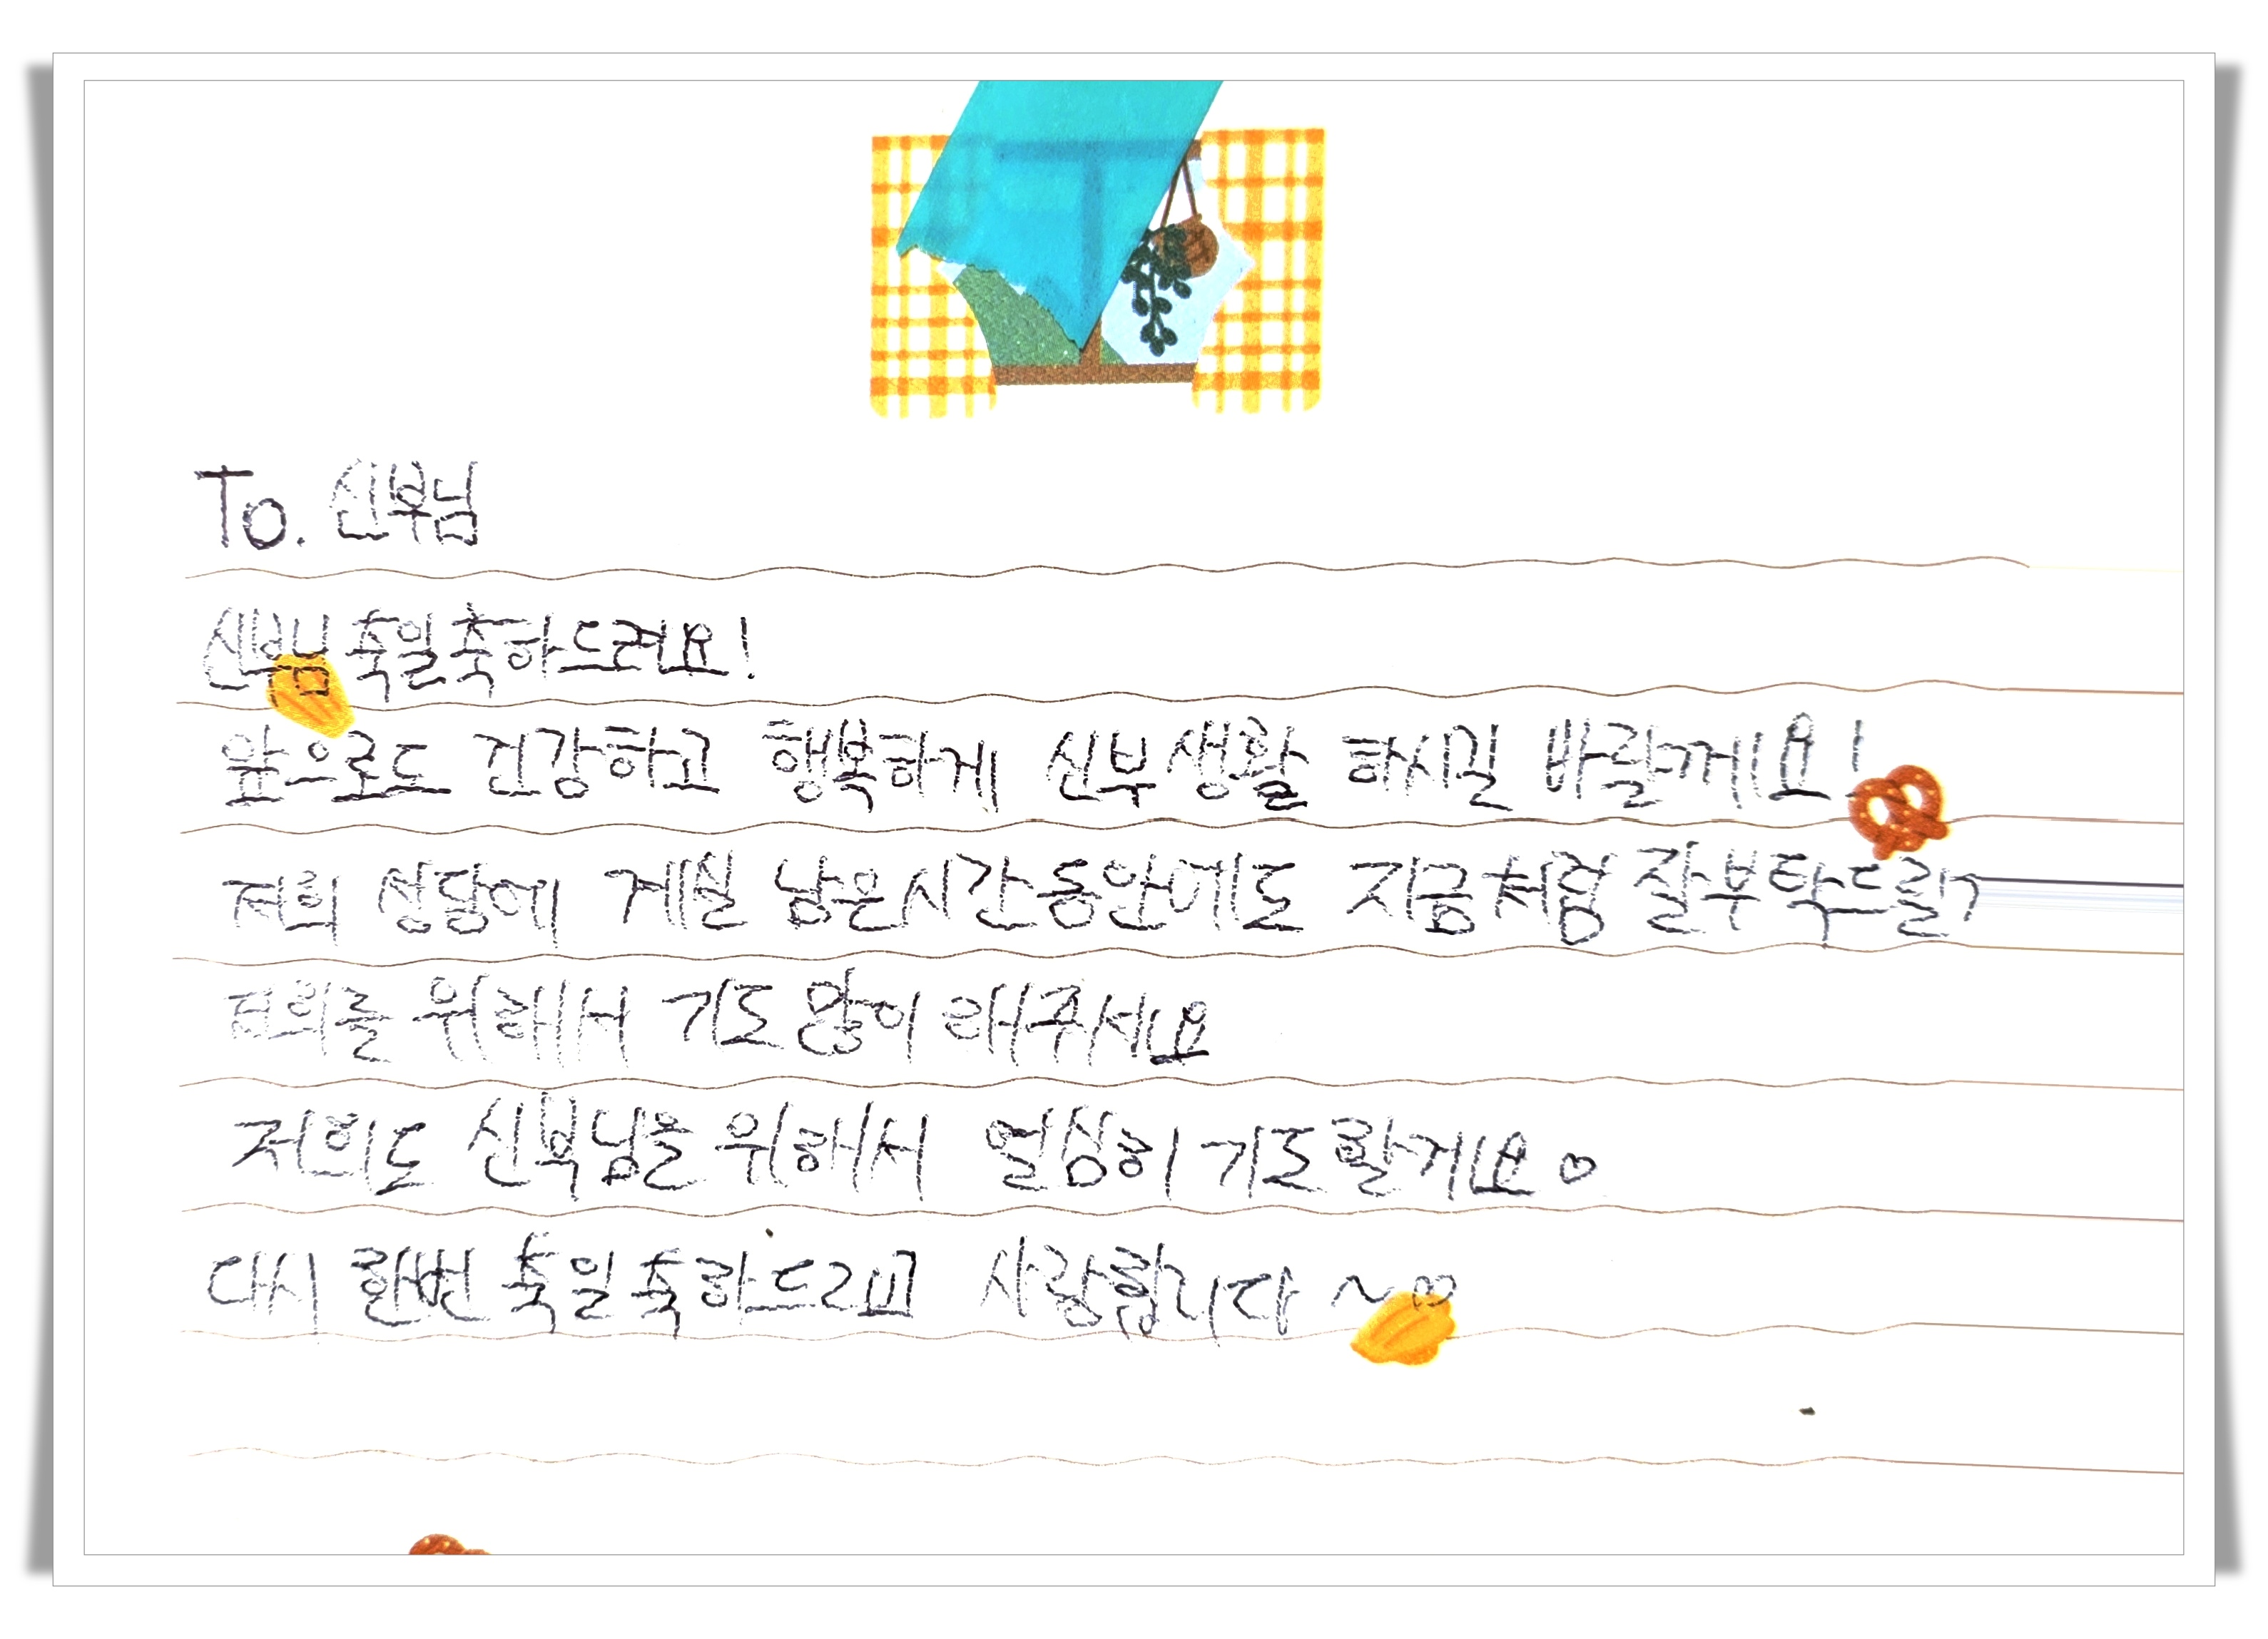 To. 신부님
신부님 축일축하드려요!
앞으로도 건강하고 행복하게 신부생활 하시길 바랄게요!
저희 성당에 계실 남은시간동안에도 지금처럼 잘부탁드릴
저희를 위해서 기도많이 해주세요
저희도 신부님을 위해서 열심히 기도할게요♡
다시 한번 축일축하드리고 사랑합니다 ~♡